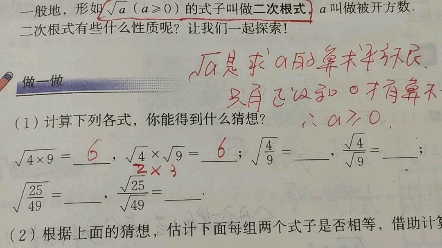 一般地,形如√a(a≥0)的式子叫做二次根式,a叫做被开方数.
二次根式有些什么性质呢?让我们一起探索!
√a是求a的算术平方根
只有正数和0才有算术
做一做
∴a≥0
(1)计算下列各式,你能得到什么猜想?
√4×9=6,√4×√9=6;√4/9=____,√4/√9=____;
2×3
√25/49=____,√25/√49=____.
(2)根据上面的猜想,估计下面每组两个式子是否相等,借助计算